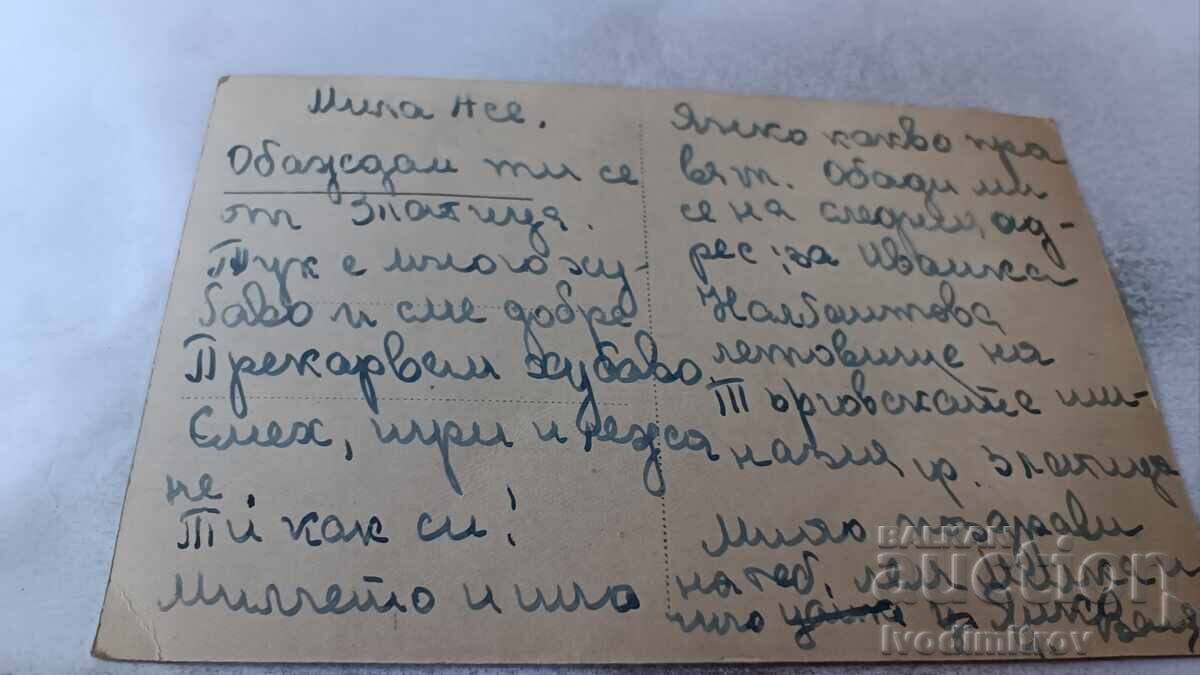 Мила Н се.
Обаждам ти се
от Златица.
Тук е много ху-
баво и сме добре
Прекарвем хубаво.
Смех, игри и лежа
не.
Ти как си!
Миличето и што
Янко какво пра
вят. Обади ми
се на следния ад-
рес: за Иванка
Налбантова
летовище на
Търговските
гр. Златица
Много поздрави
на теб, Янко Ваня
BALKAN
auction
Ivodimitrov